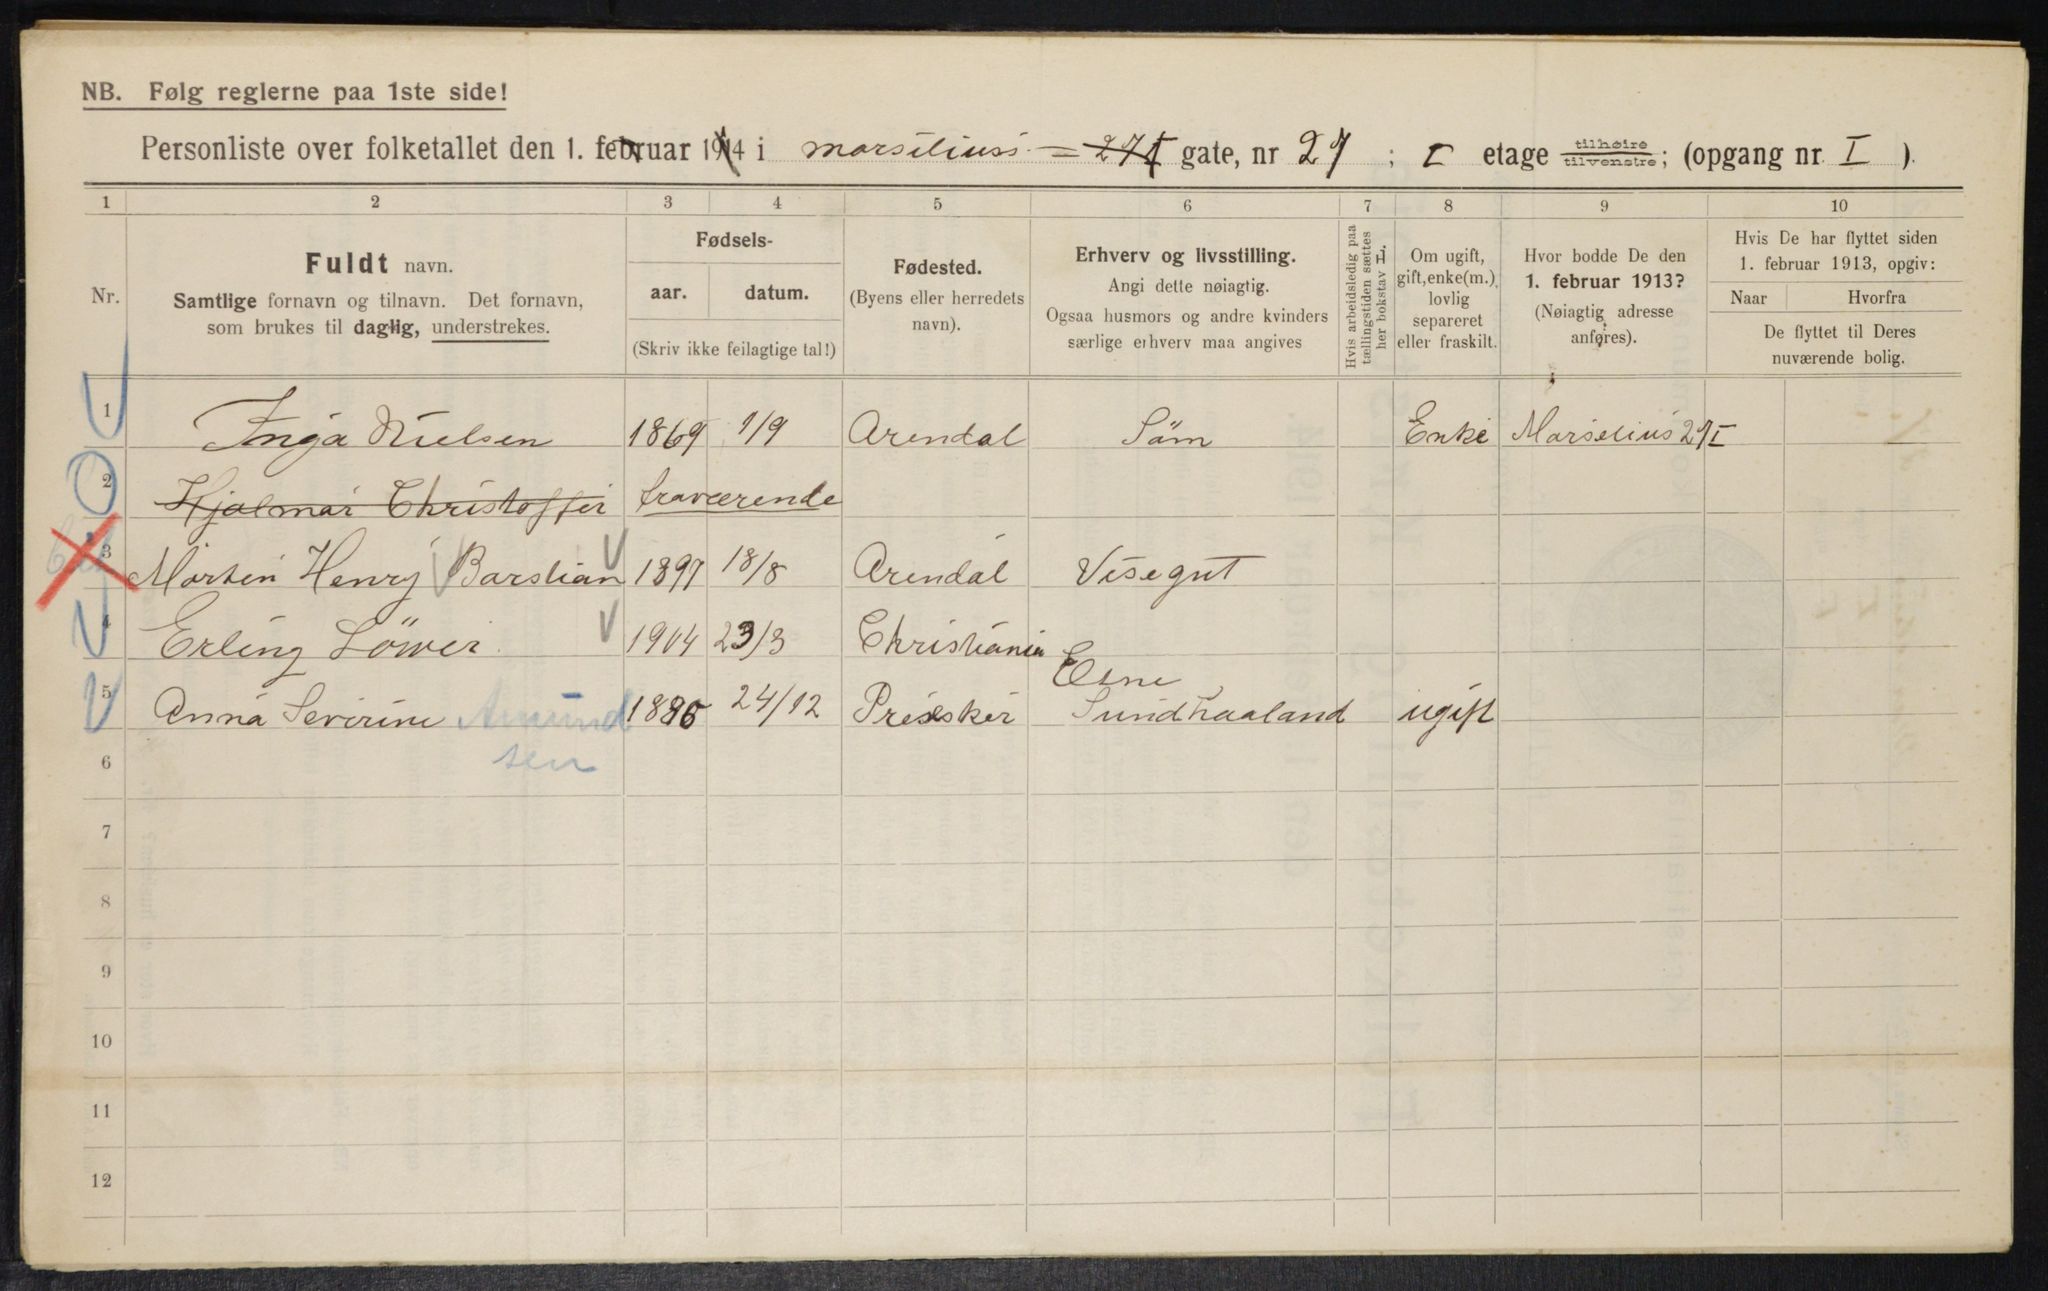 NB. Følg reglerne paa 1ste side!
Personliste over folketallet den 1. februar 1914 i marseliuss = 27 I gate, nr 27 ; I etage tilhøire tilvenstre; (opgang nr. I ).
1 2 3 4 5 6 7 8 9 10
Nr.
Fuldt navn.
Samtlige fornavn og tilnavn. Det fornavn,
som brukes til daglig, understrekes.
Fødsels-
aar. datum.
(Skriv ikke feilagtige tal!)
Fødested.
(Byens eller herredets
navn).
Erhverv og livsstilling.
Angi dette nøiagtig.
Ogsaa husmors og andre kvinders
særlige erhverv maa angives
Hvis arbeidsledig paa
tællingstiden sættes
her bokstav L.
Om ugift,
gift, enke(m.),
lovlig
separeret
eller fraskilt.
Hvor bodde De den
1. februar 1913?
(Nøiagtig adresse
anføres).
Hvis De har flyttet siden
1. februar 1913, opgiv:
Naar Hvorfra
De flyttet til Deres
nuværende bolig.
1 Inga Nielsen 1869 1/9 Arendal Söm Enke Marselius 27 I
2 Hjalmar Christoffer fraværende
3 Morten Henry Barstian 1897 18/8 Arendal Visegut
4 Erling Löwer 1904 23/3 Christiania
5 Anna Severine Amund 1886 24/12 Etne Sundhaaland ugift
6 sen
7
8
9
10
11
12